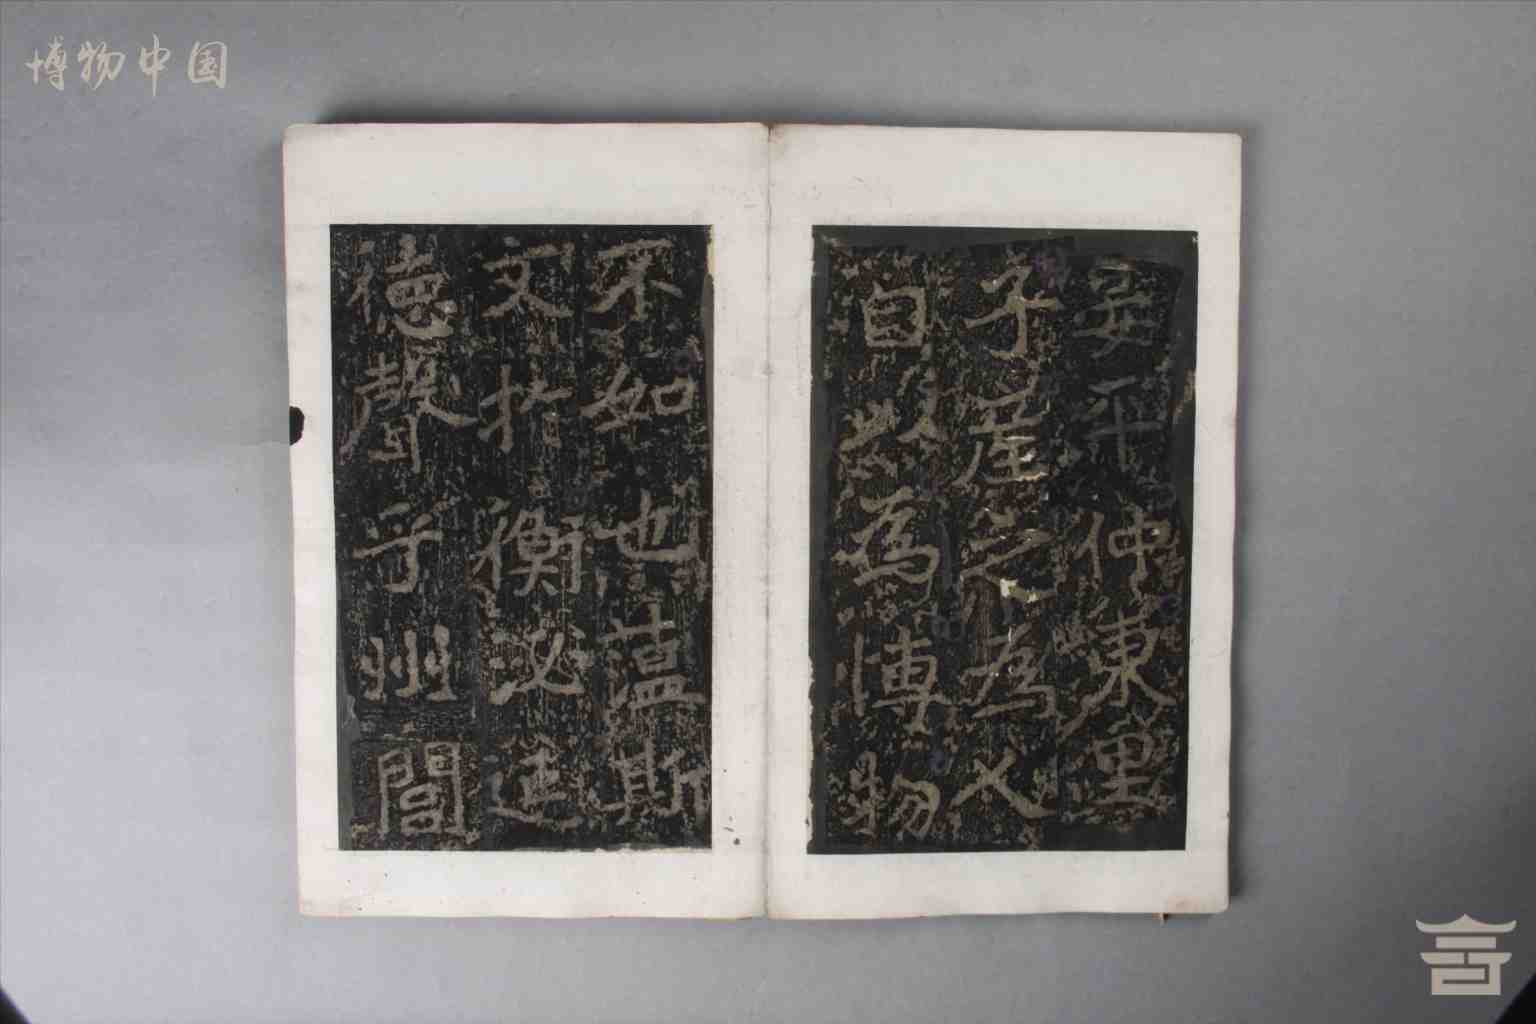 博物中国
晏平仲東里
子產之為人
自以為博物
不如也蕰斯
文於衡泌延
德聲乎州閭